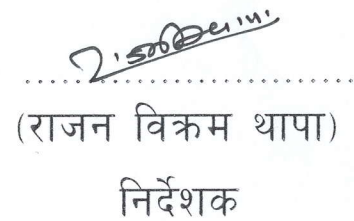 (राजन विक्रम थापा)
निर्देशक